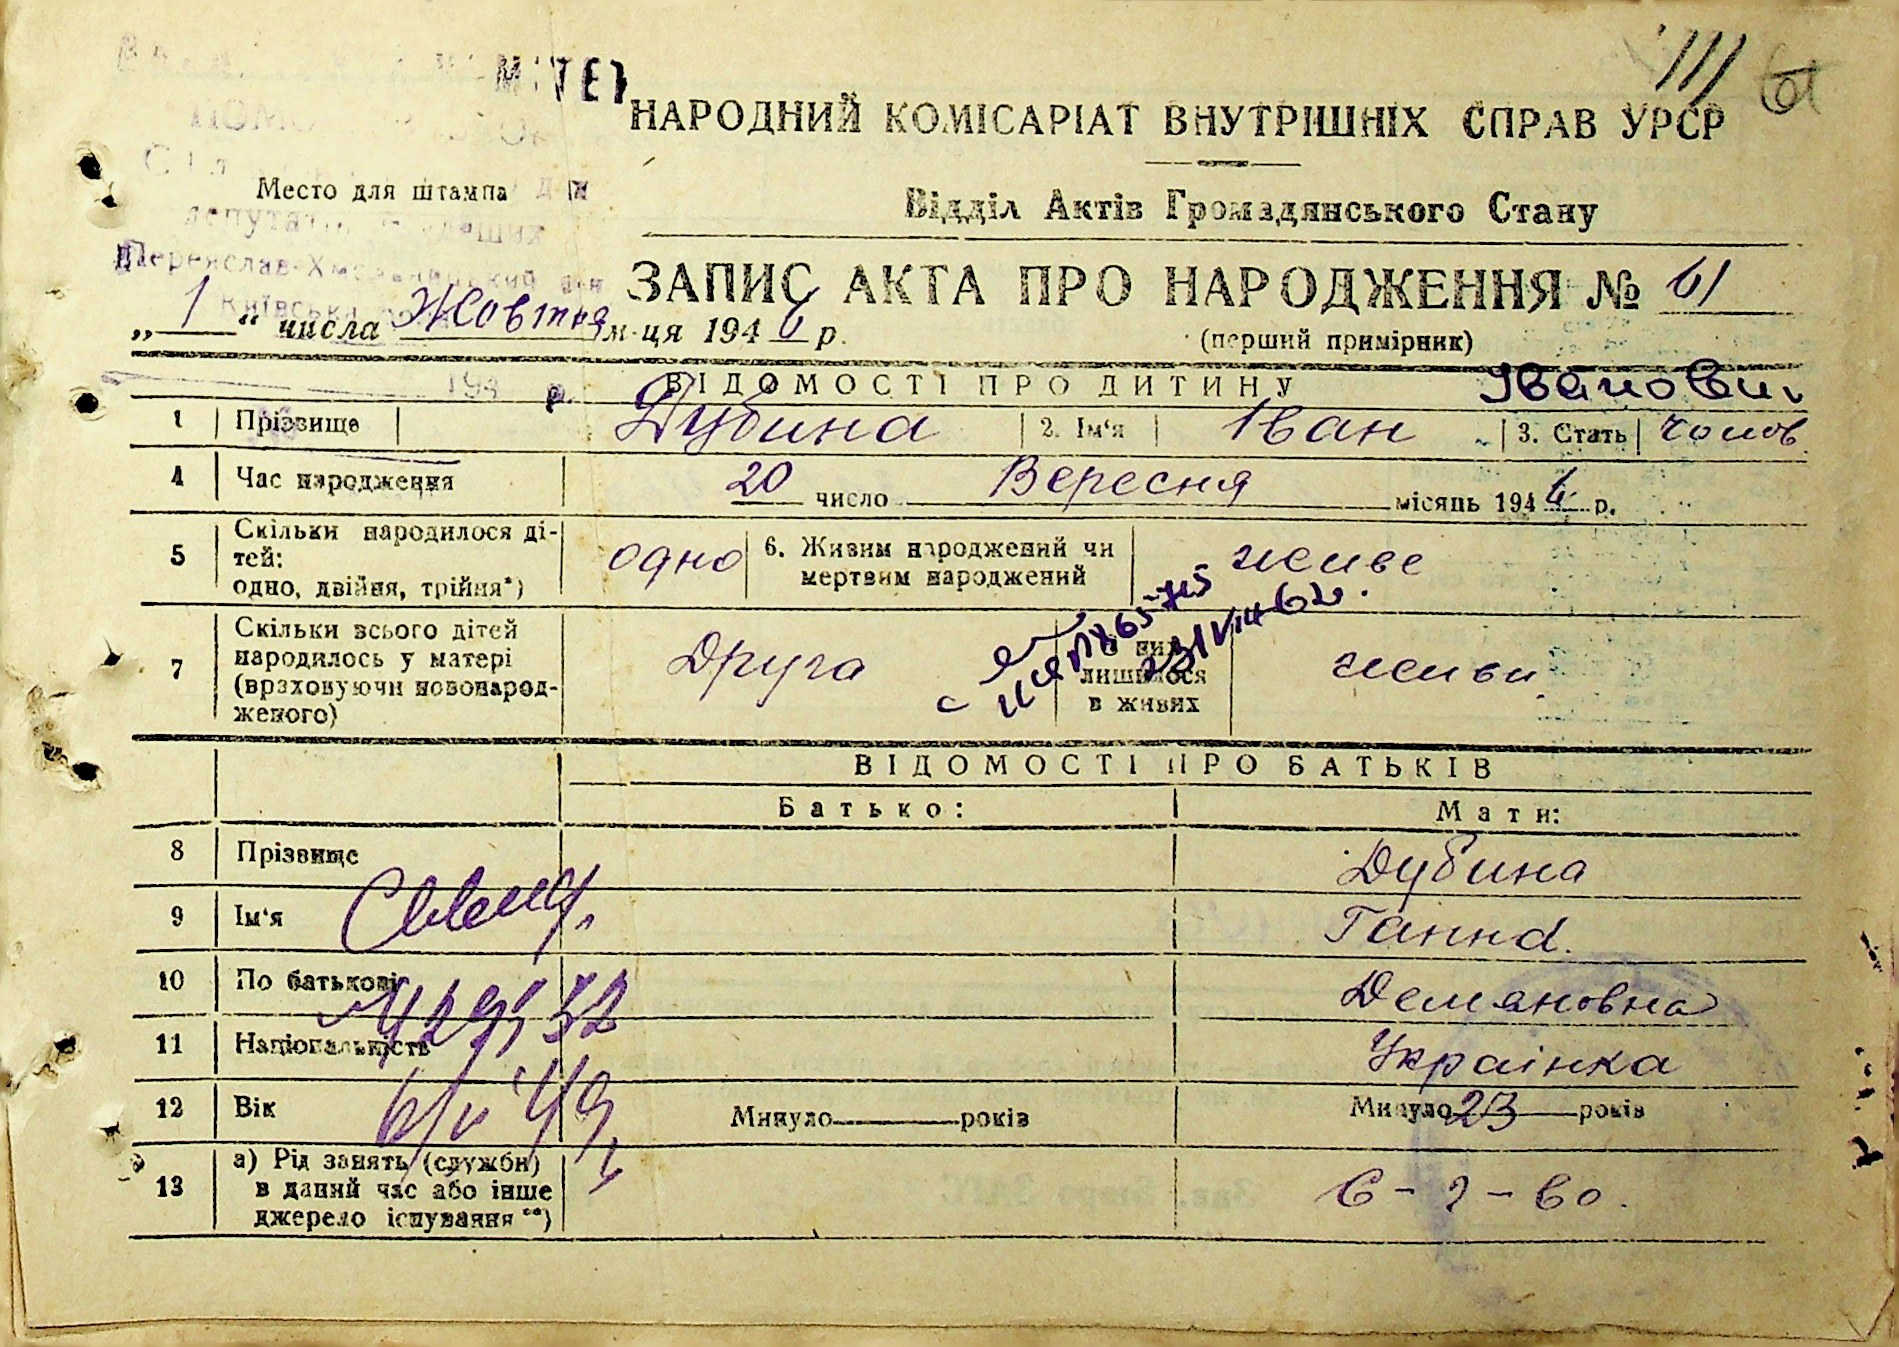 НАРОДНИЙ КОМІСАРІАТ ВНУТРІШНІХ СПРАВ УРСР
Место для штампа
Відділ Актів Громадянського Стану
Переяслав-Хмельницкий
ЗАПИС АКТА ПРО НАРОДЖЕННЯ № 61
„ 1 “ числа Жовтня м-ця 1946 р.
(перший примірник)
ВІДОМОСТІ ПРО ДИТИНУ
Іванович
1 Прізвище Дубина 2. Ім'я Іван 3. Стать чолов
4 Час народження 20 число Вересня місяць 1946 р.
5 Скільки народилося ді-
тей:
одно, двійня, трійня*) одно 6. Живим народжений чи
мертвим народжений живе
7 Скільки всього дітей
народилось у матері
(враховуючи новонарод-
женого) Друга
з них
лишилося
в живих живи
ВІДОМОСТІ ПРО БАТЬКІВ
Батько: Мати:
8 Прізвище Дубина
9 Ім'я Ганна
10 По батькові Демяновна
11 Національність Українка
12 Вік Минуло років Минуло 23 років
13 а) Рід занять (служби)
в даний час або інше
джерело існування **)